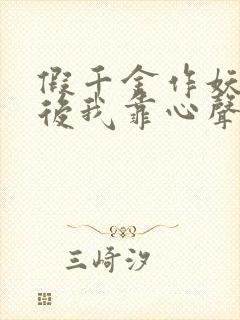 假千金作妖
後我靠心聲
三崎汐